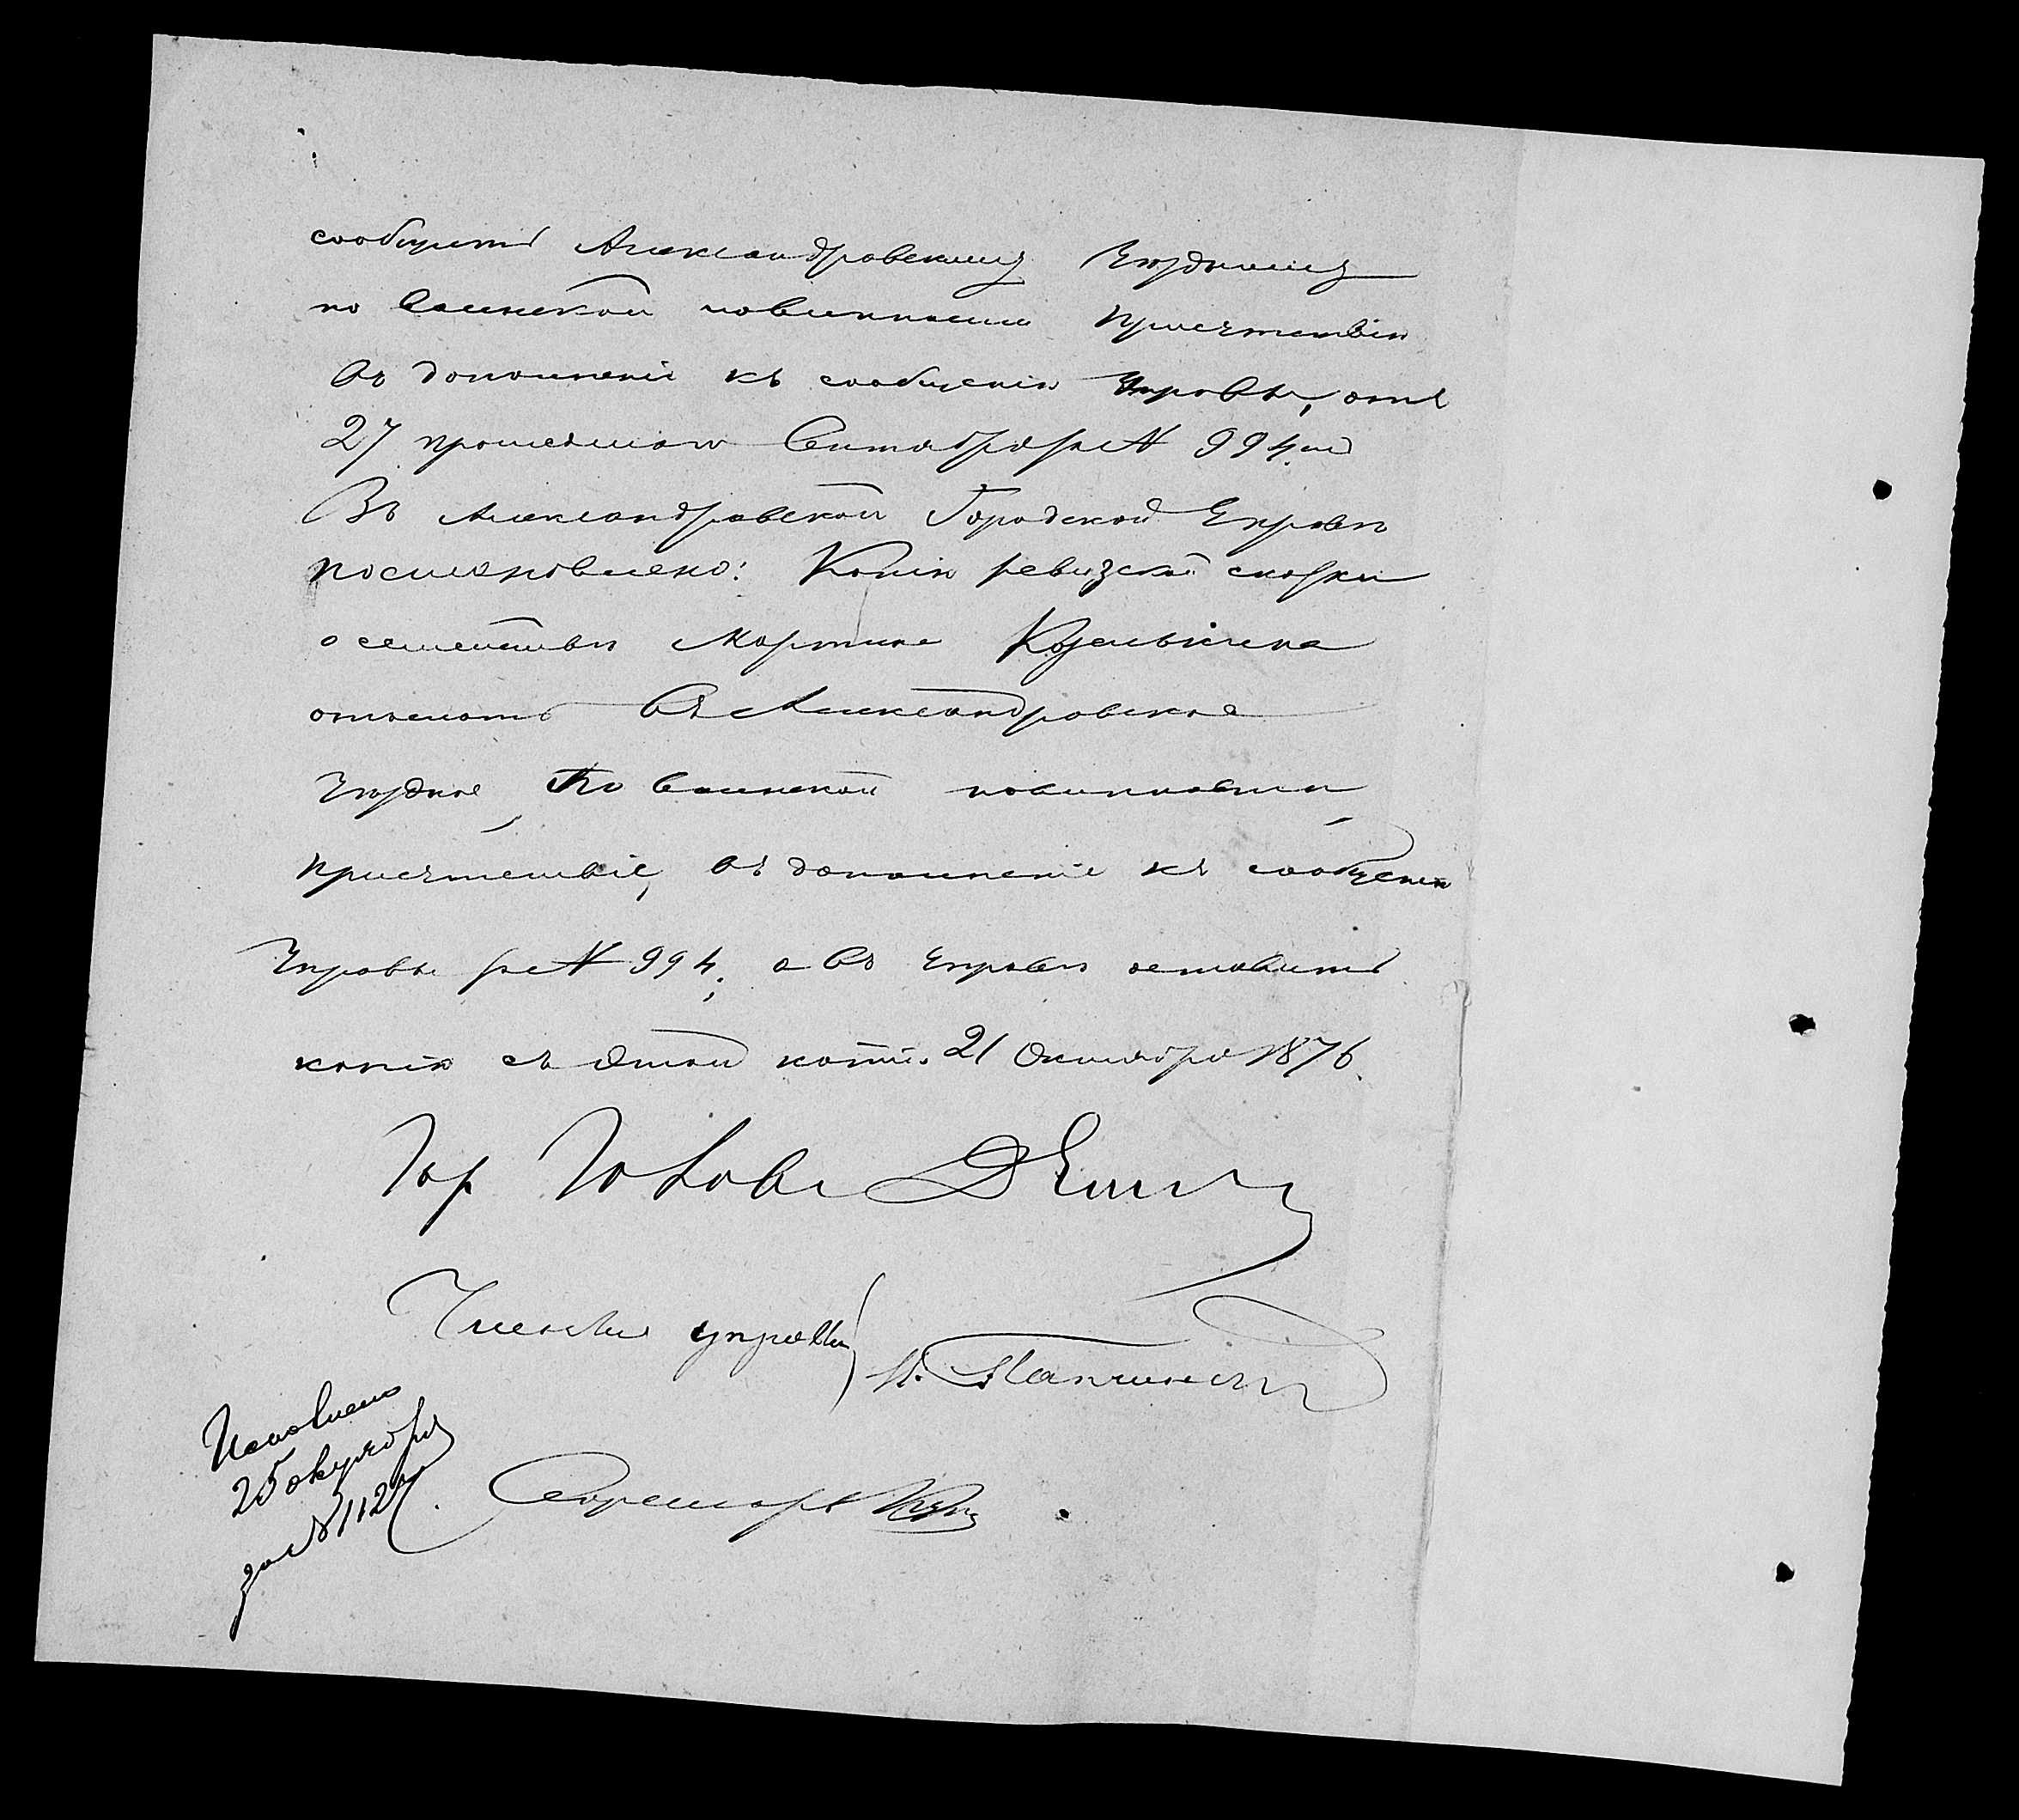 сообщить Александровскому Уѣздному
по воинской повинности Присутствію
въ дополненіе къ сообщенію Управы, отъ
27 прошедшаго Сентября за № 994.
Въ Александровской Городской Управѣ
постановлено: Копію ревизской сказки
о семействѣ Мартина
отослать въ Александровское
Уѣздное по воинской повинности
присутствіе, въ дополненіе къ сообщенію
Управы за № 994, а въ Управѣ оставить
копію съ этой копіи. 21 Октября 1876.
Гор Голова
Члены управы
Исполнено
25 октября
за № 1124
Секретарь